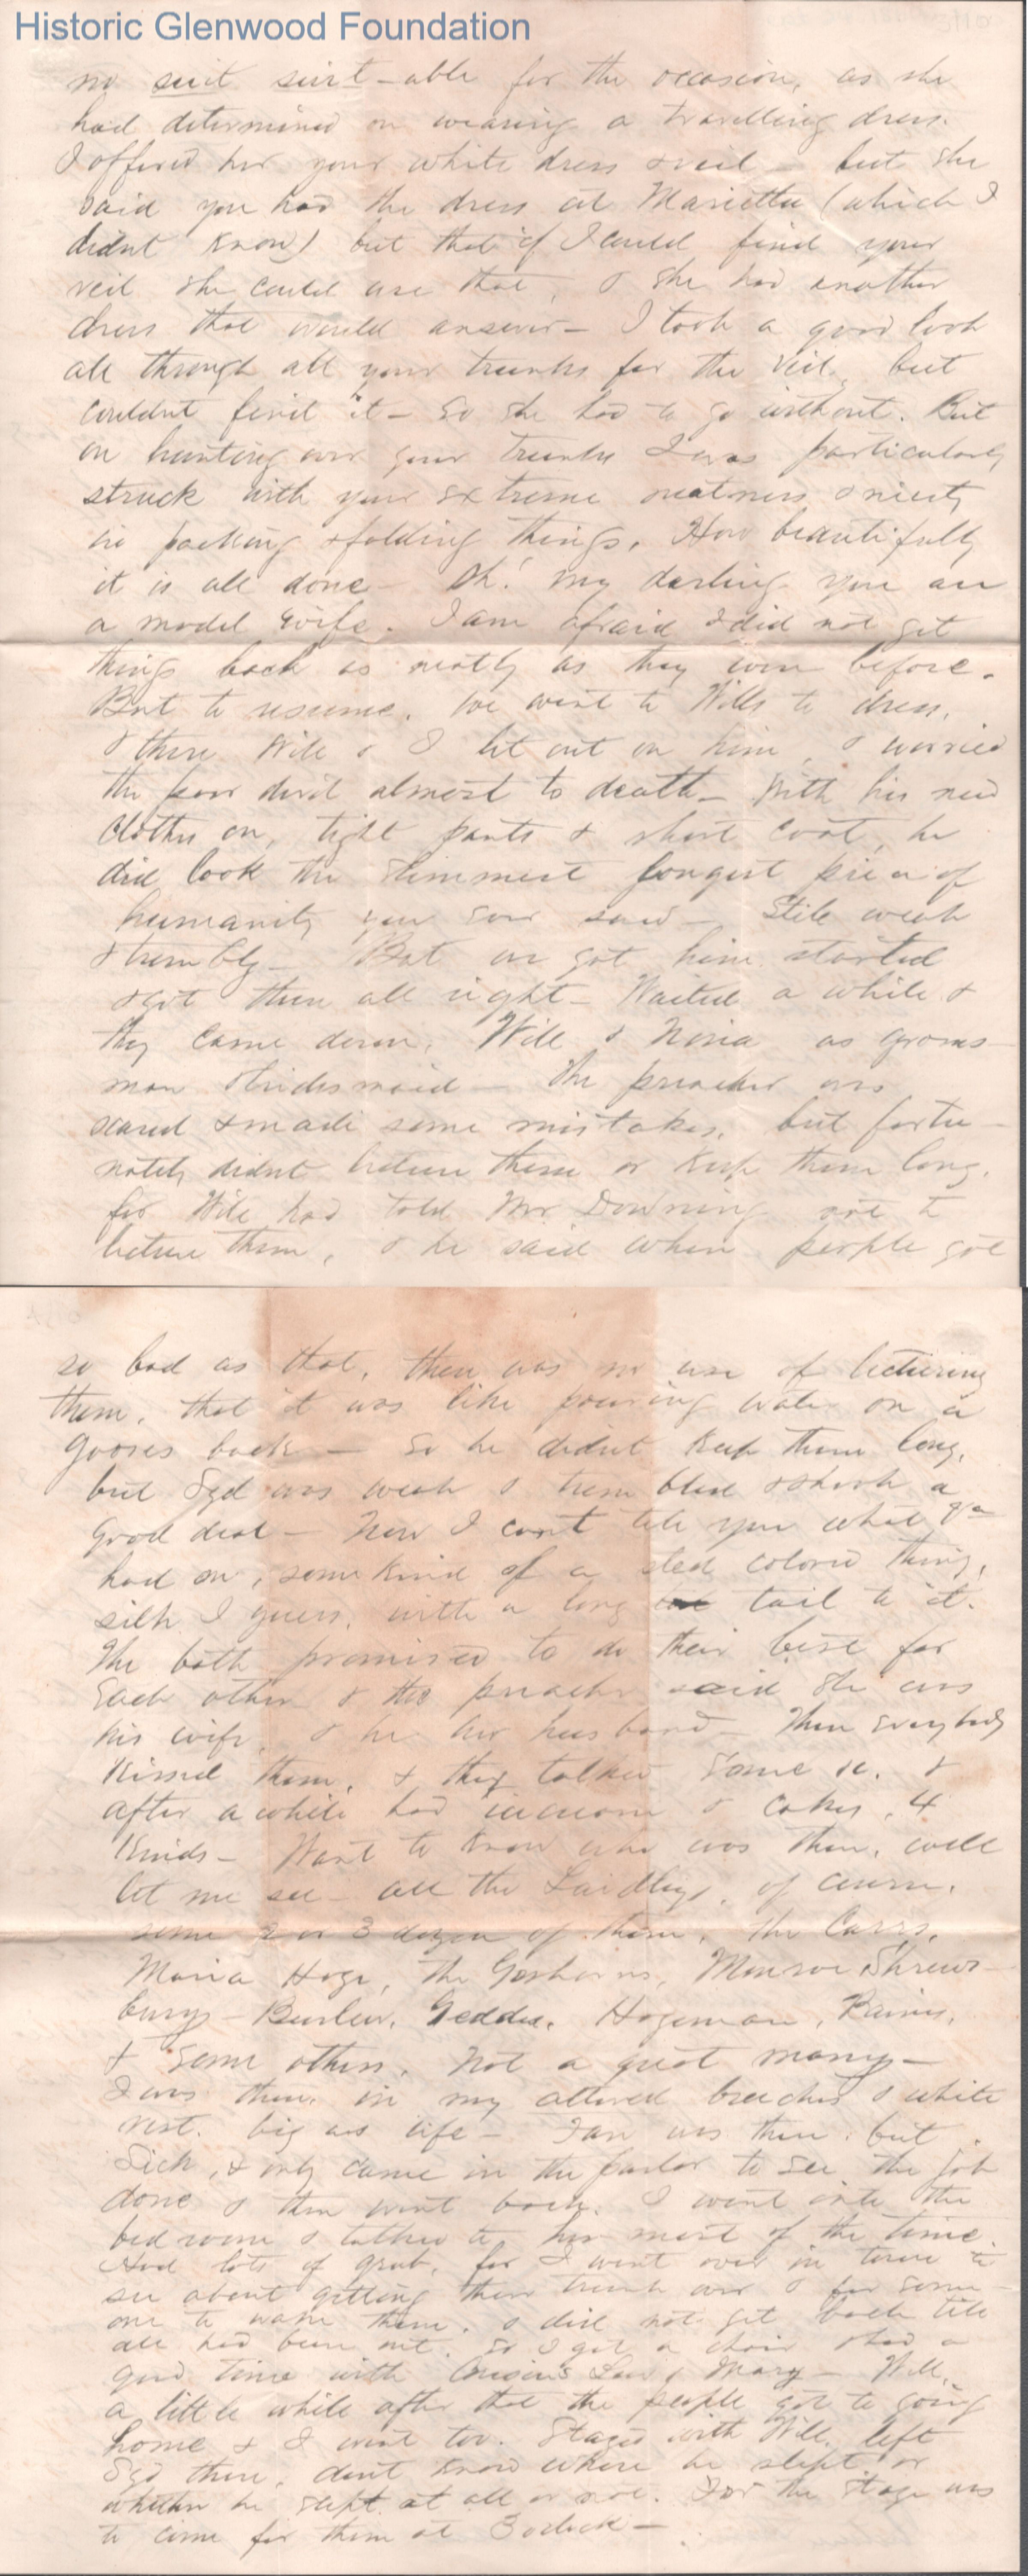 Historic Glenwood Foundation
no suit suit-able for the occasion, as she
had determined on wearing a travelling dress.
I offered her your white dress & veil – but she
said you had the dress at Marietta (which I
didnt know) but that if I could find your
veil she could use that, & she had another
dress that would answer – I took a good look
all through all your trunks for the veil, but
couldnt find it – so she had to go without. But
on hunting over your trunks I was particularly
struck with your extreme neatness & nicety
in packing & folding things. How beautifully
it is all done – Oh! my darling you are
a model wife. I am afraid I did not get
things back as neatly as they were before.
But to resume. We went to Wills to dress,
& there Will & I let out on him, & worried
the poor devil almost to death – With his new
clothes on, tight pants & short coat, he
did look the slimmest longest piece of
humanity you ever saw – Still weak
& trembly – But we got him started
& got there all right – Waited a while &
they came down. Will & Nina as grooms-
man & bridesmaid – The preacher was
scared & made some mistakes, but fortu-
nately didnt lecture them or keep them long,
for Will had told Mr Downing not to
lecture them, & he said when people got
so bad as that, there was no use of lecturing
them, that it was like pouring water on a
gooses back – So he didnt keep them long,
but Syd was weak & trembled & shook a
good deal – Now I cant tell you what
had on, some kind of a sted colored thing,
silk I guess, with a long tail to it.
The both promised to do their best for
each other & the preacher said she was
his wife, & he her husband – Then everybody
kissed them, & they talked some &c. &
after a while had icecream & cakes, 4
kinds – Want to know who was there, well
let me see – all the Laidleys, of course,
some 2 or 3 dozen of them, the Carrs,
Maria Hoge, the Goshorns, Monroe Shrews-
burys – Burlew, Geddes, Hogeman, Raines,
& some others. Not a great many –
I was there in my altered breeches & white
vest. big as life – Fan was there, but
sick, & only came in the parlor to see the job
done & then went back. I went into the
bed room & talked to her most of the time.
Had lots of grub, for I went over in town to
see about getting their trunk over & for some-
one to wake them, & did not get back till
all had been out, so I got a chair & had a
good time with Cousins & Mary – Well,
a little while after that the people got to going
home & I went too. Stayed with Will, left
Syd there, dont know where he slept or
whether he slept at all or not. For the stage was
to come for them at 3 oclock –